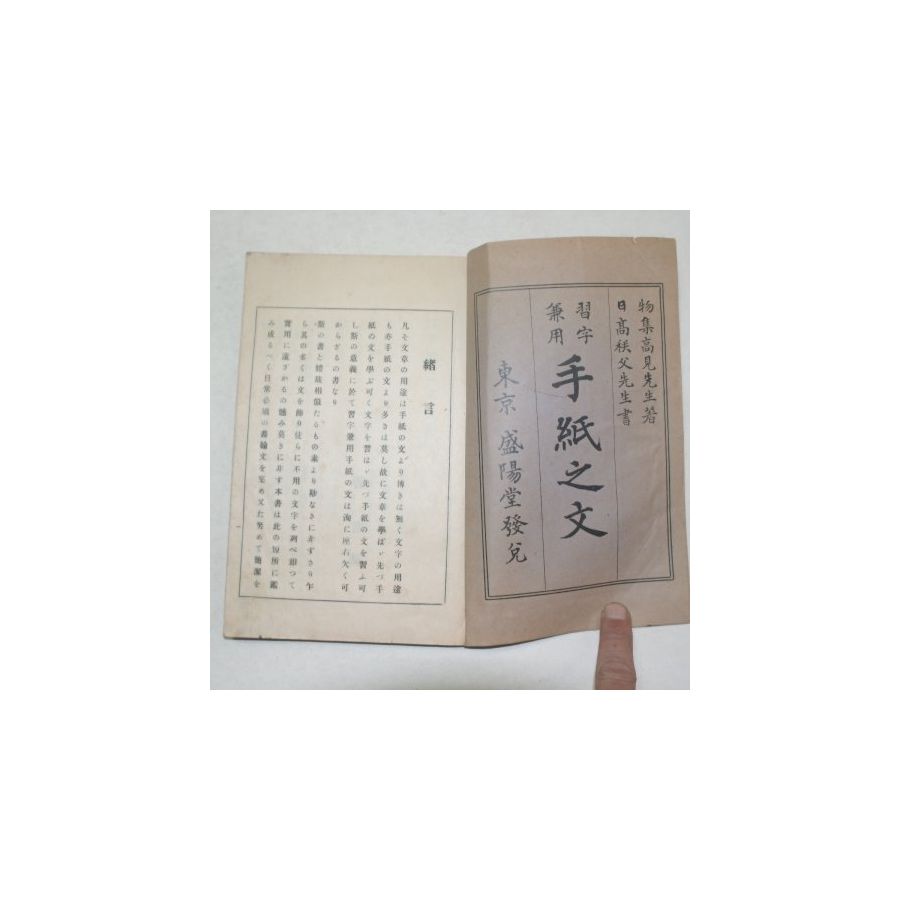 物集高見先生著
日高秩父先生書
習字
兼用
手紙之文
東京 盛陽堂發兌
緒言
凡そ文章の用途は手紙の文より博きは無く文字の用途
も亦手紙の文より多きは莫し故に文章を學ばゞ先づ手
紙の文を學ぶ可く文字を習はゞ先づ手紙の文を習ふ可
し斯の意義に於て習字兼用手紙の文は洵に座右欠く可
からざるの書なり
斯の書と體裁相似たるもの素より尠なきに非ず
ら其の多くは文を飾り徒らに不用の文字を
實用に遠ざかるの憾み莫きに非ず本書は此の短所に鑑
み成るべく日常必須の書翰文を集め又た努めて簡潔を